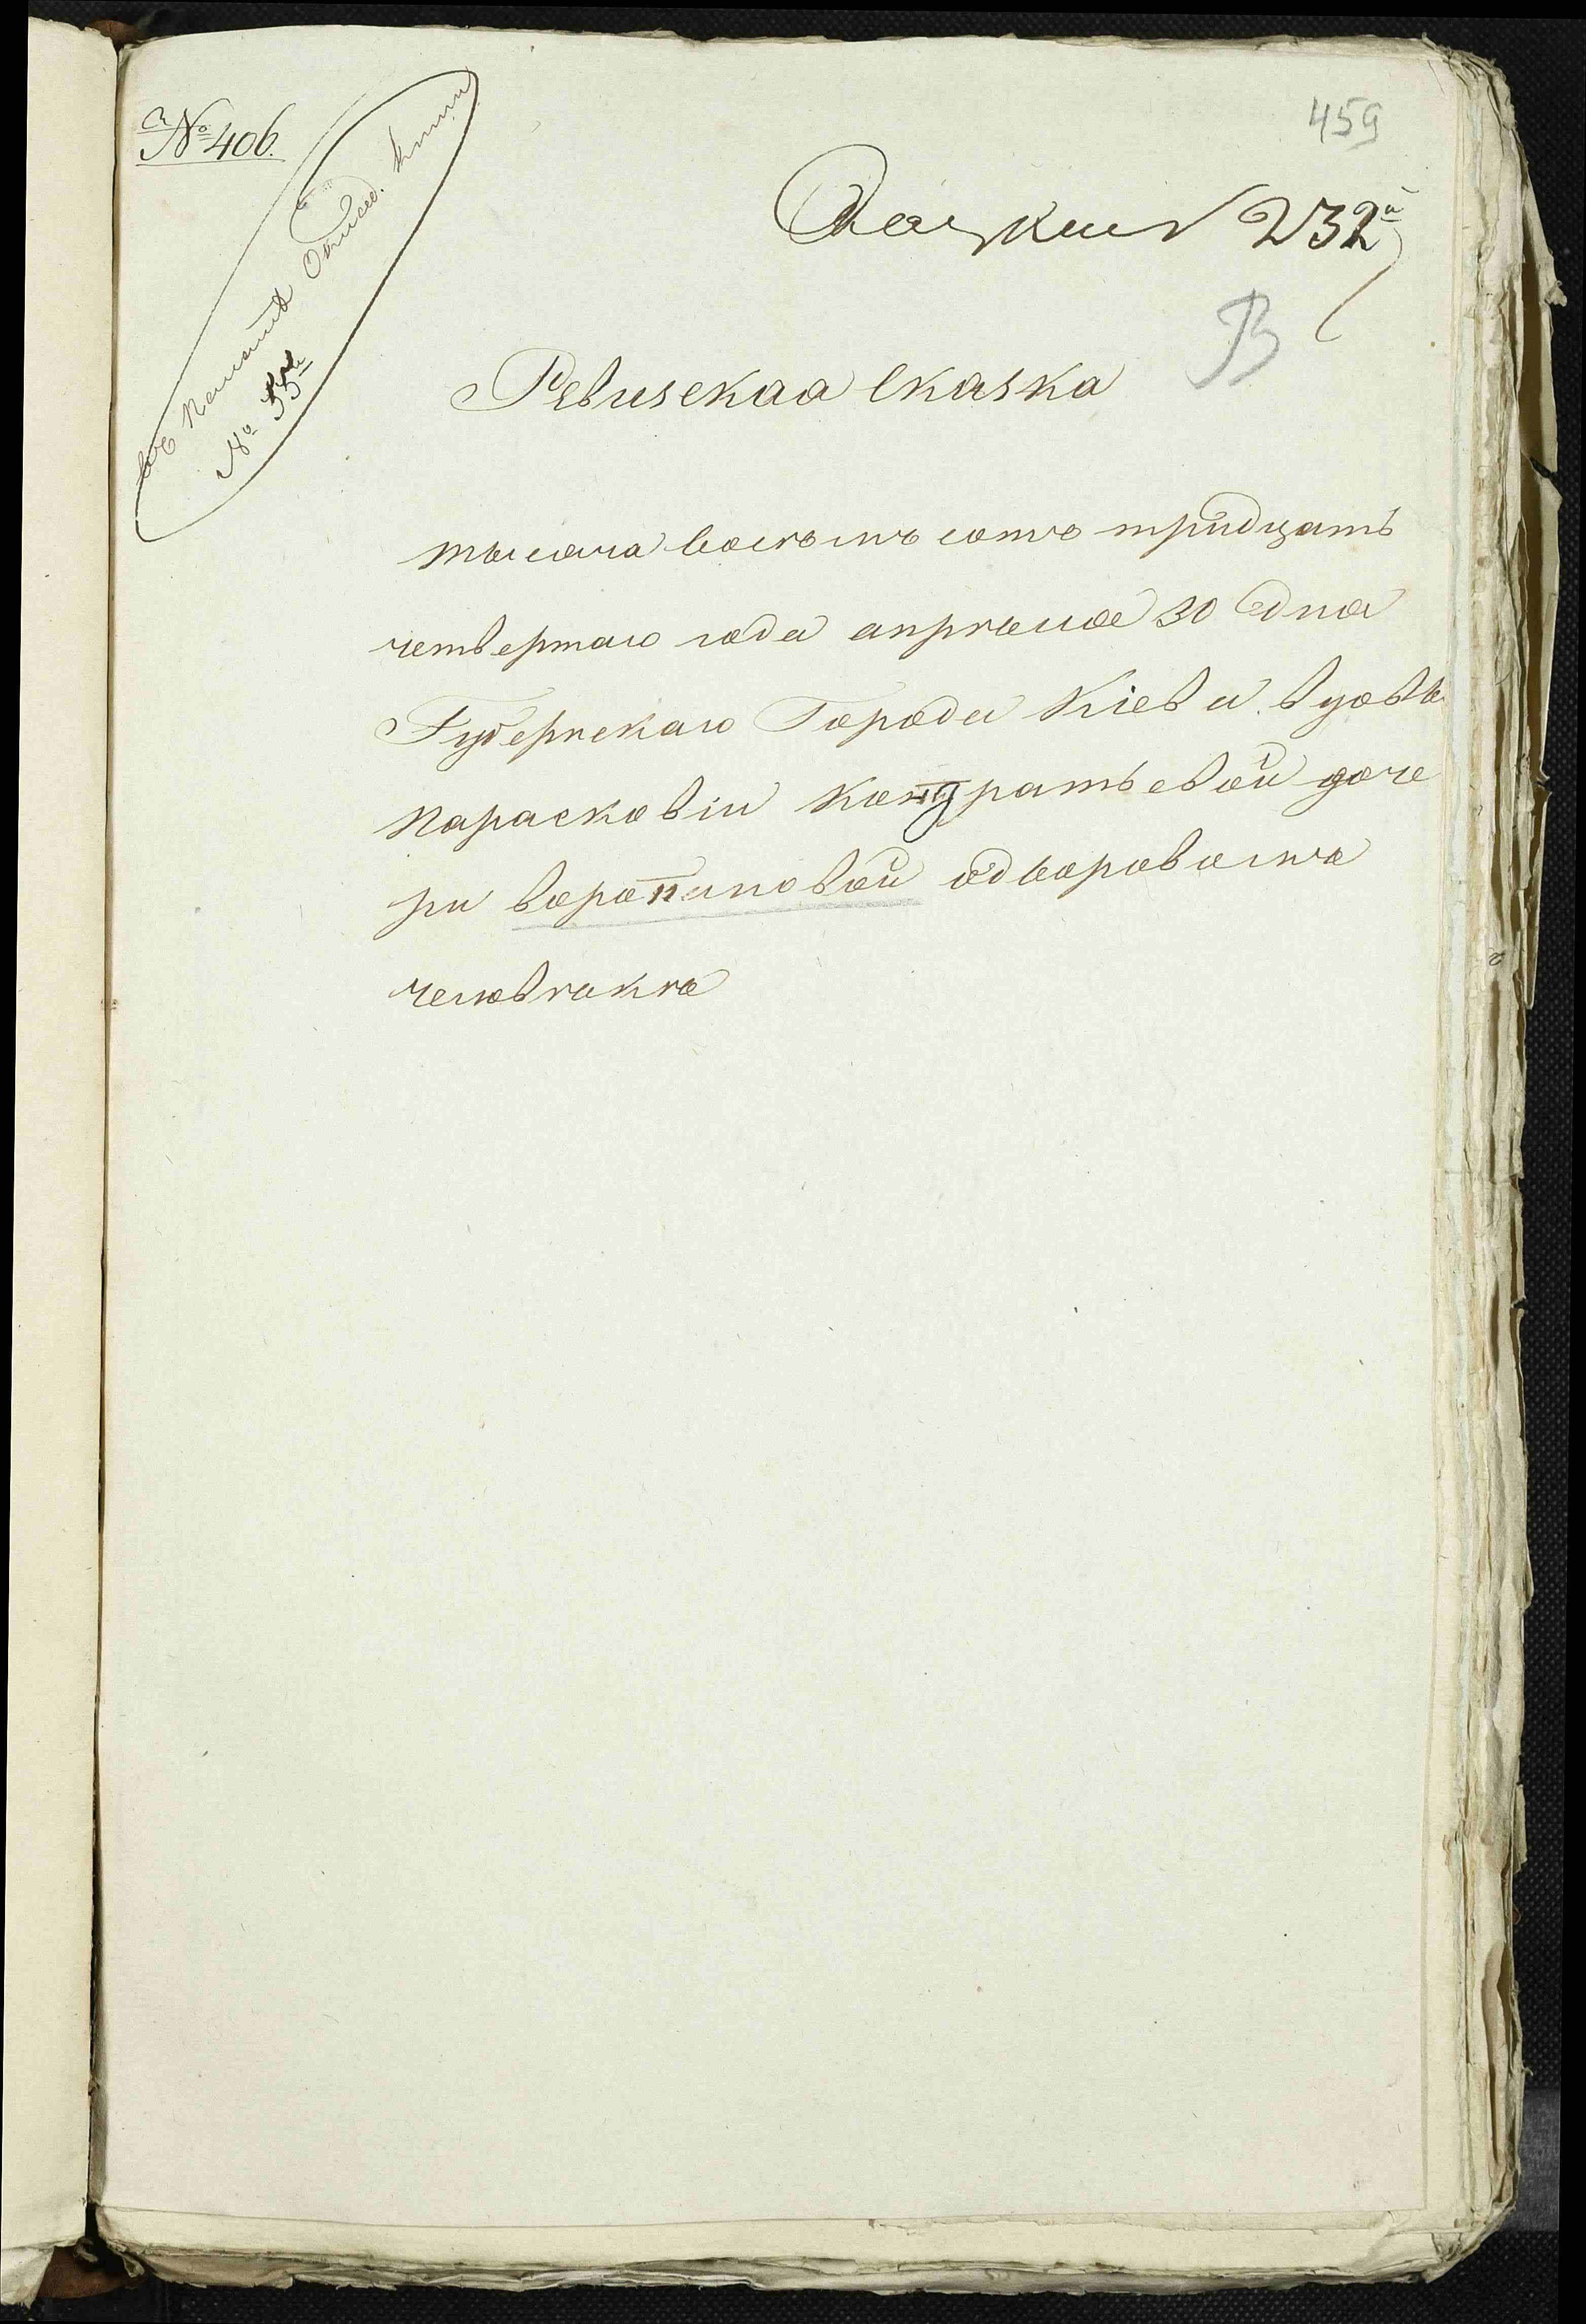 № 406.
459
232й
В
Ревизская сказка
тысяча восемъ сотъ тридцать
четвертаго года апреля 30 дня
Губернскаго Города Кіева вдовы
Парасковіи Кондратьевой доче
ри воропиновой одворовомъ
человекъ